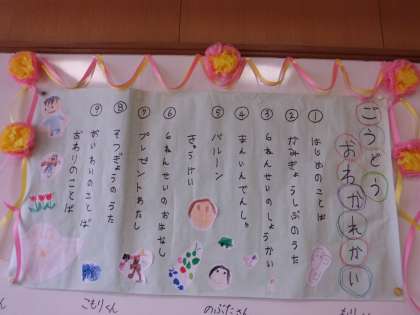 ごうどう
おわかれかい
① はじめのことば
② かみぎょうしぶのうた
③ 6ねんせいのしょうかい
④ まんいんでんしゃ
⑤ バルーン
きゅうけい
⑥ 6ねんせいのおはなし
⑦ プレゼントわたし
⑧ そつぎょうのうた
⑨ おいわいのことば
おわりのことば
こもりくん
のぶたさん